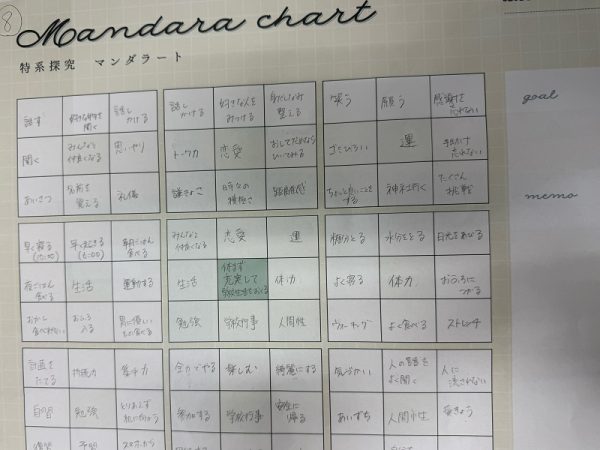 8
Mandara chart
特系探究 マンダラート
goal
memo
話す 話し かける
話し かける 好きな人を みつける 身だしなみ 整える
笑う 願う 感謝を 忘れない
聞く みんなと 仲良くなる 思いやり
トーク力 恋愛
運
あいさつ 名前を 覚える 礼儀
時々の 積極さ
ちょっといいことを する 神社行く たくさん 挑戦
早く寝る 早く起きる (6:00) 朝ごはん 食べる
みんなと 仲良くなる 恋愛 運
糖分とる 水分をとる 日光をあびる
夜ごはん 食べる 生活 運動する
生活 休まず 充実して 学校生活をおくる 体力
よく寝る 体力 おふろに つかる
おかし 食べすぎない おふろ 入る
勉強 学校行事 人間性
ウォーキング よく食べる ストレッチ
計画を たてる 持続力 集中力
全力でやる 楽しむ 綺麗にする
気づかい 人の話を よく聞く 人に 流されない
自習 勉強 とりあえず 机に向かう
参加する 学校行事 安全に 帰る
あいずち 人間性
復習 予習 スマホから